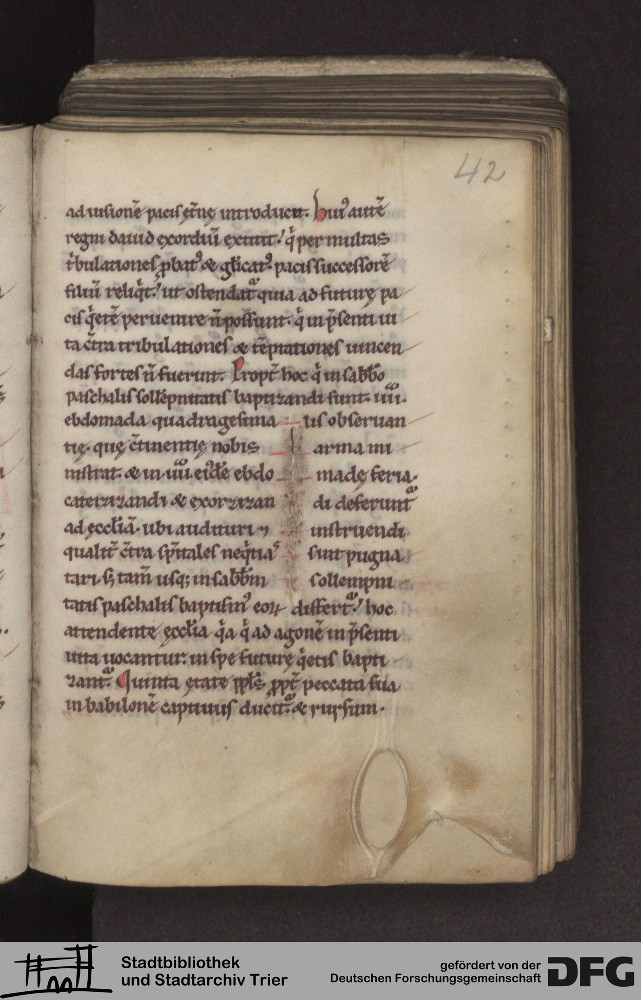 42
ad uisionē pacis ęt̄nę introducit. Hui⁹ autē
regni dauid exordiū extitit. q̇ per multas
t̄bulationes ꝓbat⁹ & gl̄icat⁹. pacis successorē
filiū reliq̇t. ut ostendat᷑ quia ad futurę pa
cis q̇etē peruenire n̄ possunt. q̇ in p̄senti ui
ta c̄tra tribulationes & tēptationes uincen
das fortes n̄ fuerint. Propt̄ hoc q̇ in sabb̄o
paschalis sollēpnitatis baptizandi sunt. iiii.
ebdomada quadragesima us obseruan
tię. quę c̄tinentię nobis arma mi
nistrat. & in iiii. eiusdē ebdo madę feria.
catezizandi & exorzizan di deferunt᷑
ad ęccl̄iā. ubi audituri ⁊ instruendi
qualit̄ c̄tra sp̄itales neq̇tias sint pugna
tari. s; tam̄ usq; in sabb̄m sollempni
tatis paschalis baptism⁹ eoꝝ differt᷑. hoc
attendente ęccl̄ia q̇a q̇ ad agonē in p̄senti
uita uocantur. in spe futurę q̇etis bapti
zant᷑. Quinta ętate ppl̄s ꝓpt̄ peccata sua
in babilonē captiuus ducit᷑. & rursum.
Stadtbibliothek
und Stadtarchiv Trier
gefördert von der
Deutschen Forschungsgemeinschaft
DFG